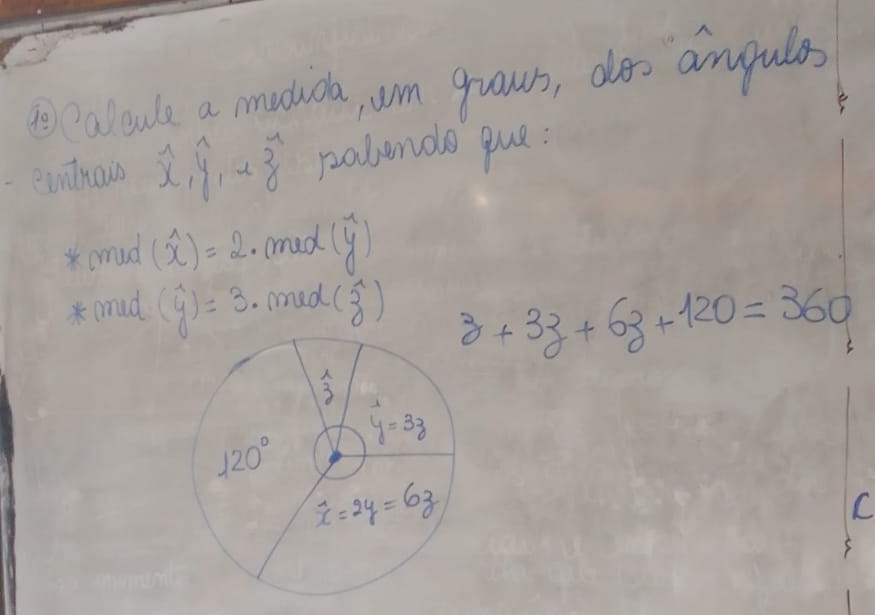 1º Calcule a medida, em graus, dos ângulos
centrais x̂, ŷ, e ẑ sabendo que:
* med (x̂) = 2. med (ŷ)
* med (ŷ) = 3. med (ẑ)
z + 3z + 6z + 120 = 360
ẑ
ŷ = 3z
120°
x̂ = 2y = 6z